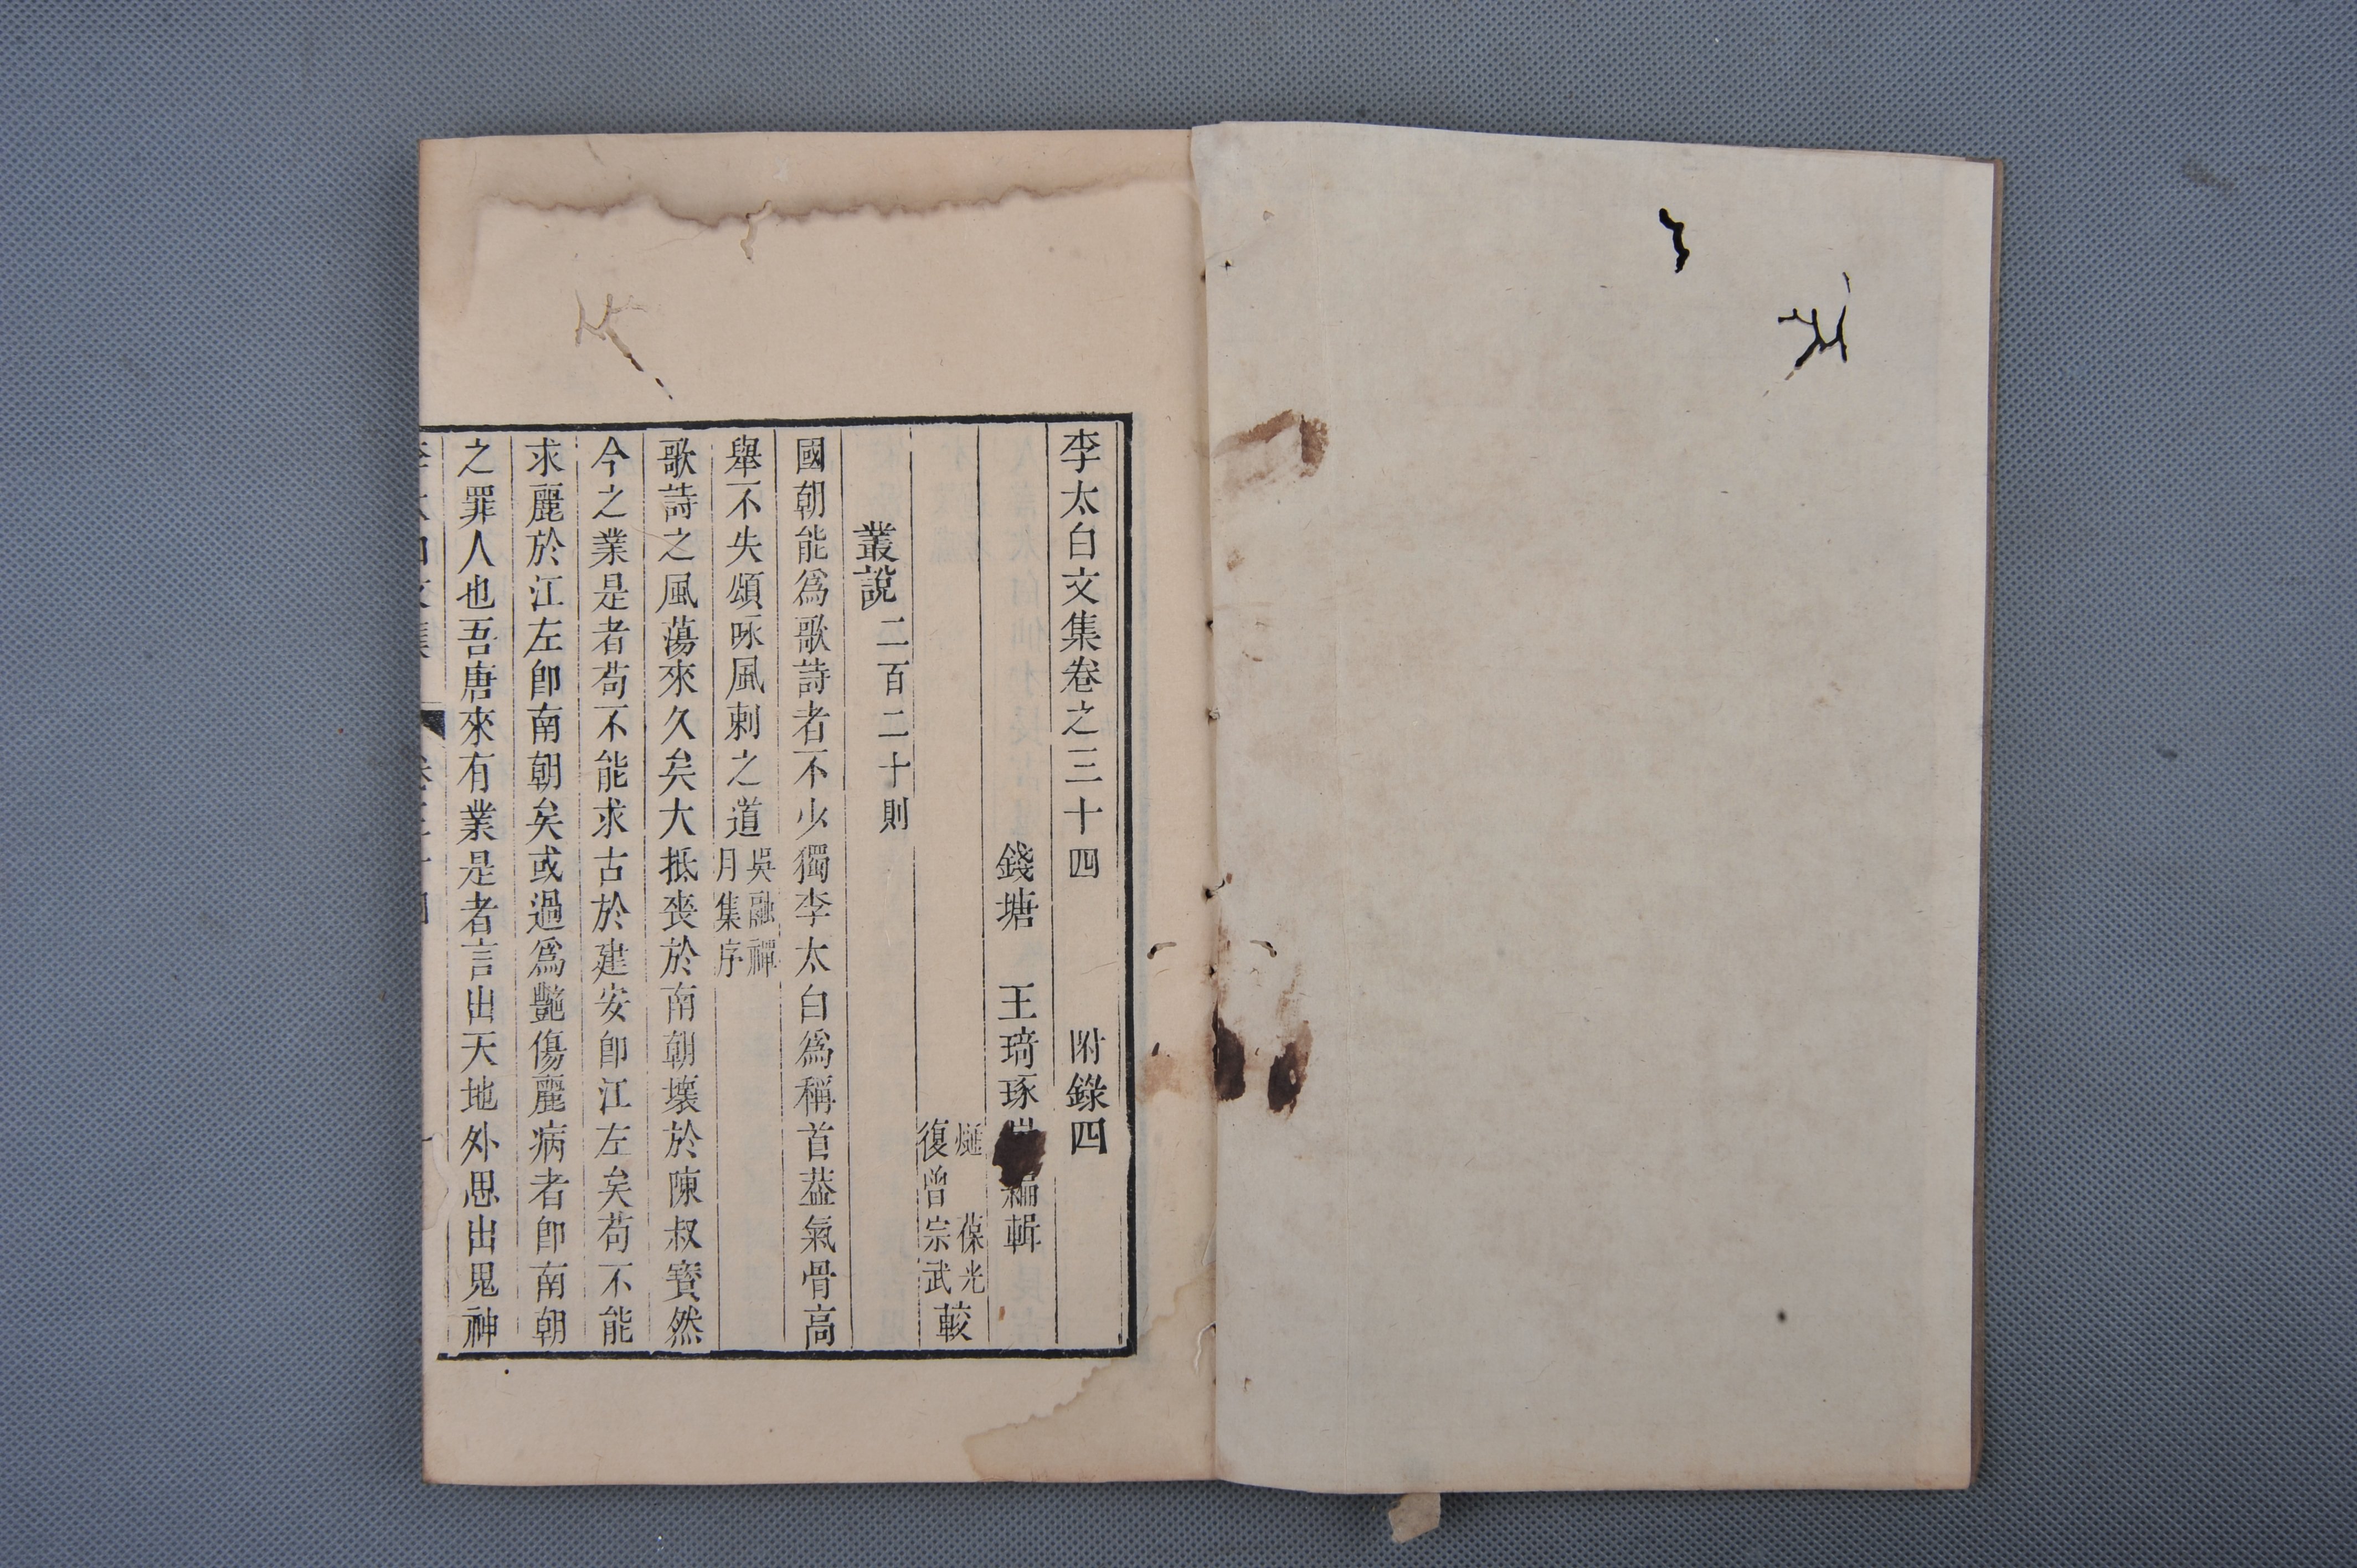 李太白文集卷之三十四　附錄四
錢塘　王琦琢　編輯
燧　葆光
復曾宗武
較
叢說二百二十則
國朝能爲歌詩者不少獨李太白爲稱首葢氣骨高
舉不失頌詠風刺之道
吳融禪
月集序
歌詩之風蕩來久矣大抵喪於南朝壞於陳叔寶然
今之業是者苟不能求古於建安卽江左矣苟不能
求麗於江左卽南朝矣或過爲艷傷麗病者卽南朝
之罪人也吾唐來有業是者言出天地外思出鬼神